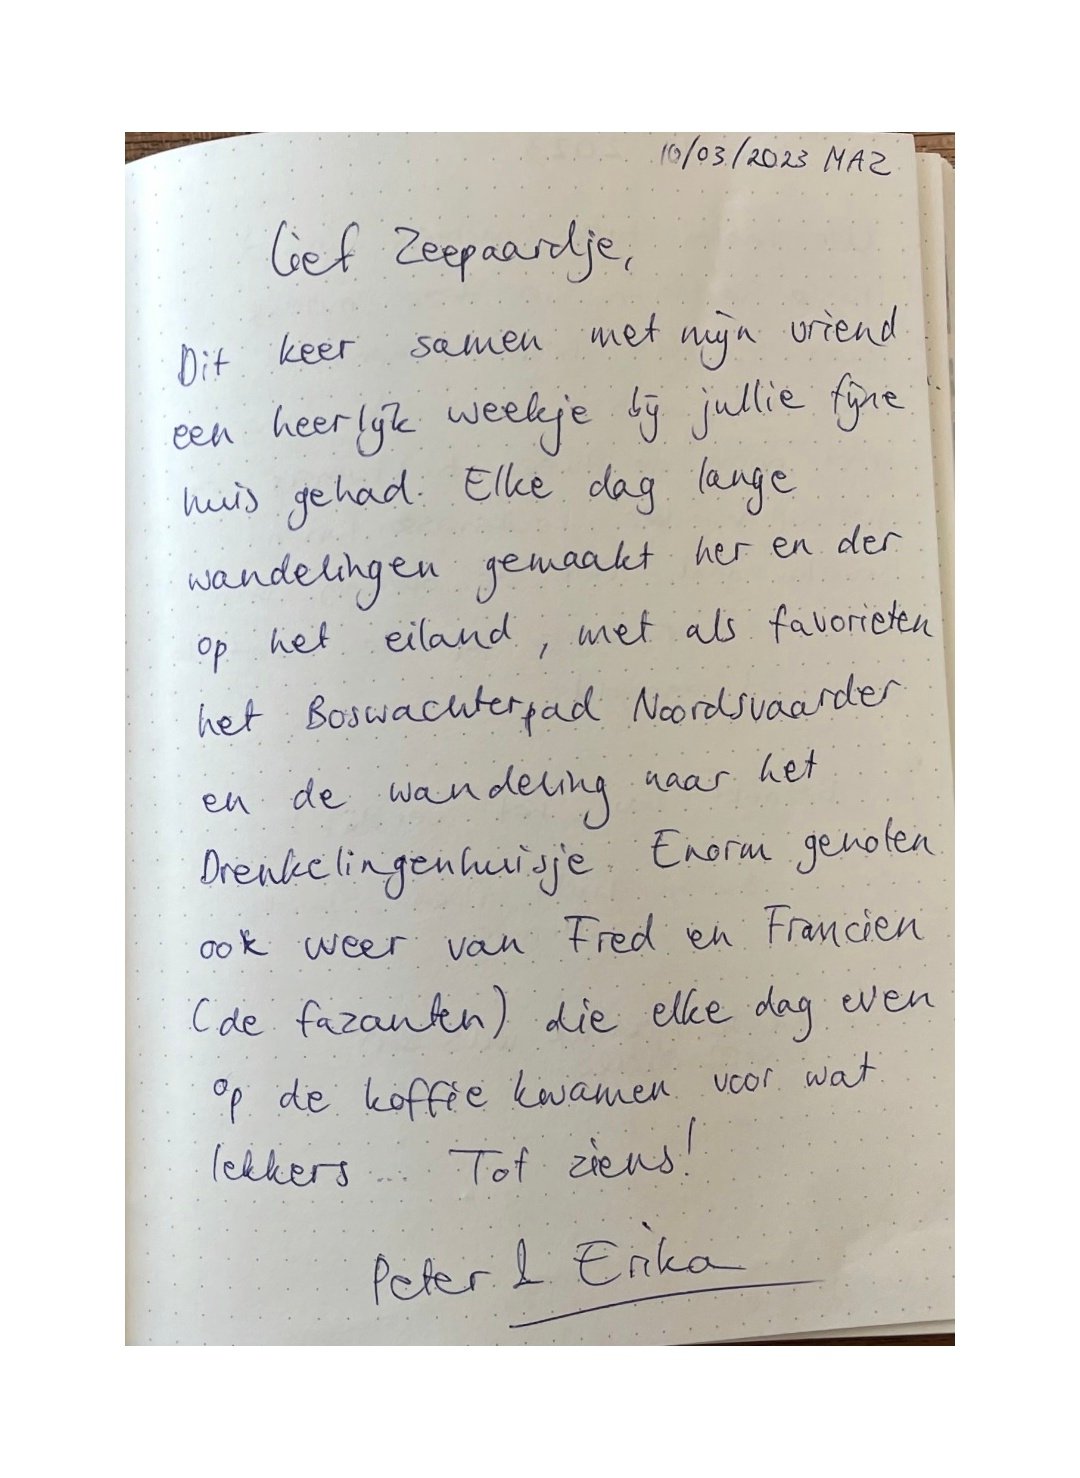 10/03/2023 MAZ
Lief Zeepaardje,
Dit keer samen met mijn vriend
een heerlijk weekje bij jullie fijne
huis gehad. Elke dag lange
wandelingen gemaakt her en der
op het eiland, met als favorieten
het Boswachterpad Noordsvaarder
en de wandeling naar het
Drenkelingenhuisje. Enorm genoten
ook weer van Fred en Francien
(de fazanten) die elke dag even
op de koffie kwamen voor wat
lekkers ... Tot ziens!
Peter & Erika